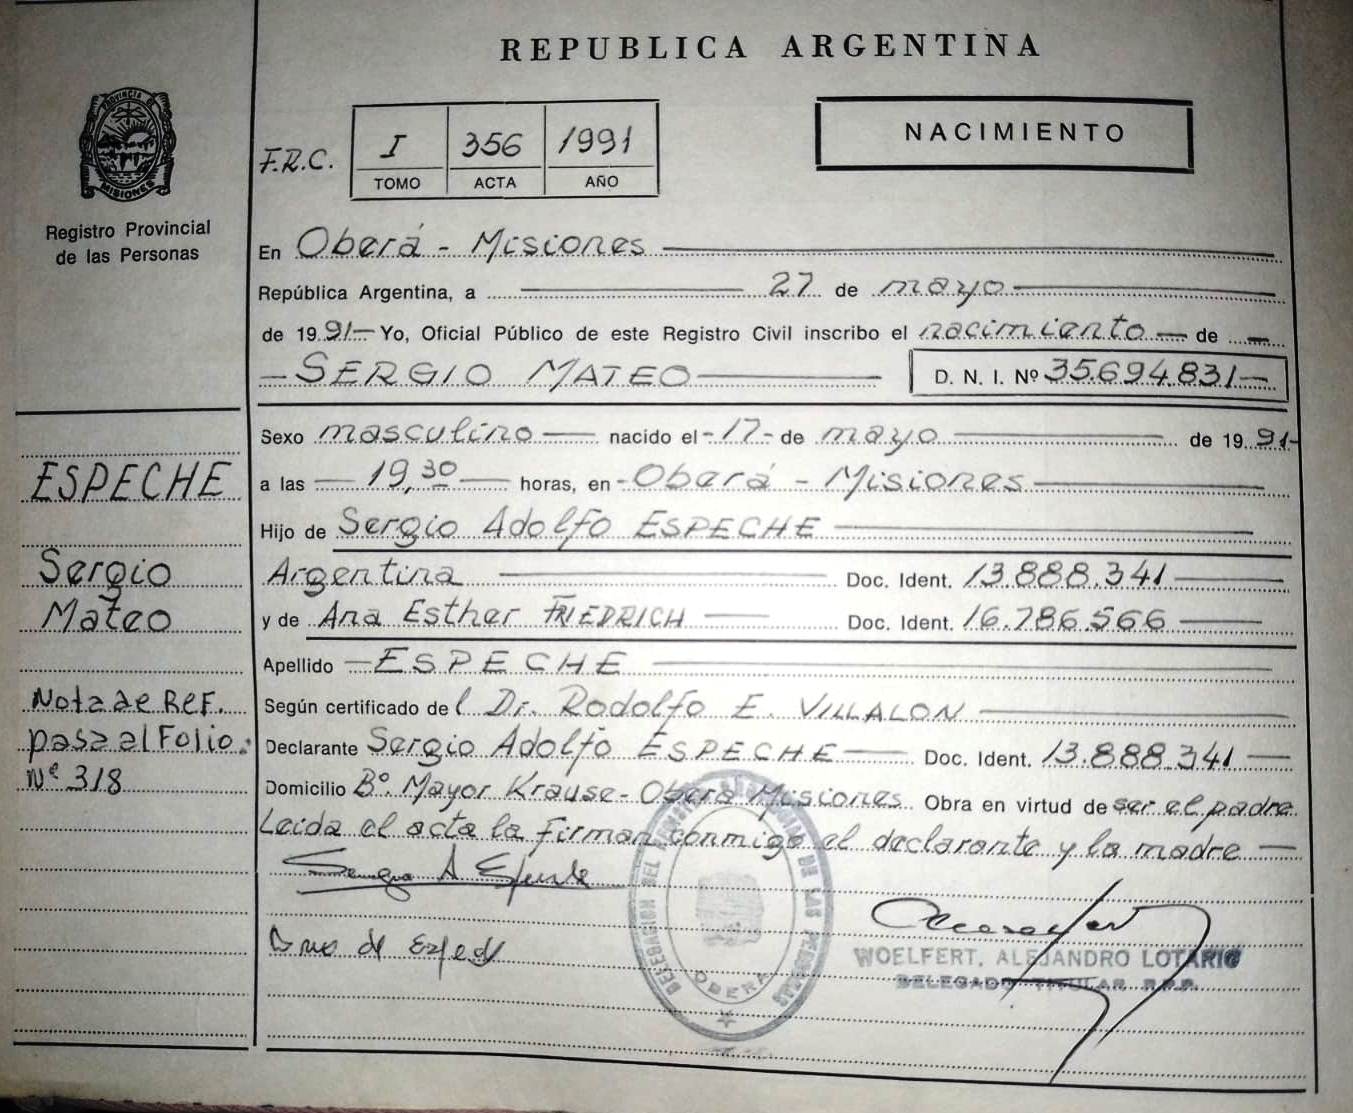 REPUBLICA ARGENTINA
PROVINCIA DE
MISIONES
Registro Provincial
de las Personas
F.R.C. I 356 1991
TOMO ACTA AÑO
NACIMIENTO
En Oberá - Misiones
República Argentina, a 27 de mayo
de 1991 Yo, Oficial Público de este Registro Civil inscribo el nacimiento de
SERGIO MATEO D. N. I. Nº 35.694.831
Sexo masculino nacido el 17 de mayo de 1991
a las 19,30 horas, en Oberá - Misiones
Hijo de Sergio Adolfo ESPECHE
Argentina Doc. Ident. 13.888.341
y de Ana Esther FRIEDRICH Doc. Ident. 16.786.566
Apellido ESPECHE
Según certificado del Dr. Rodolfo E. VILLALON
Declarante Sergio Adolfo ESPECHE Doc. Ident. 13.888.341
Domicilio Bº. Mayor Krause - Oberá Misiones Obra en virtud de ser el padre
Leida el acta la firman conmigo el declarante y la madre
ESPECHE
Sergio
Mateo
Nota de Ref.
pasa al Folio:
Nº 318
DE LAS PERSONAS
OBERA
WOELFERT, ALEJANDRO LOTARIO
DELEGADO TITULAR R.P.P.